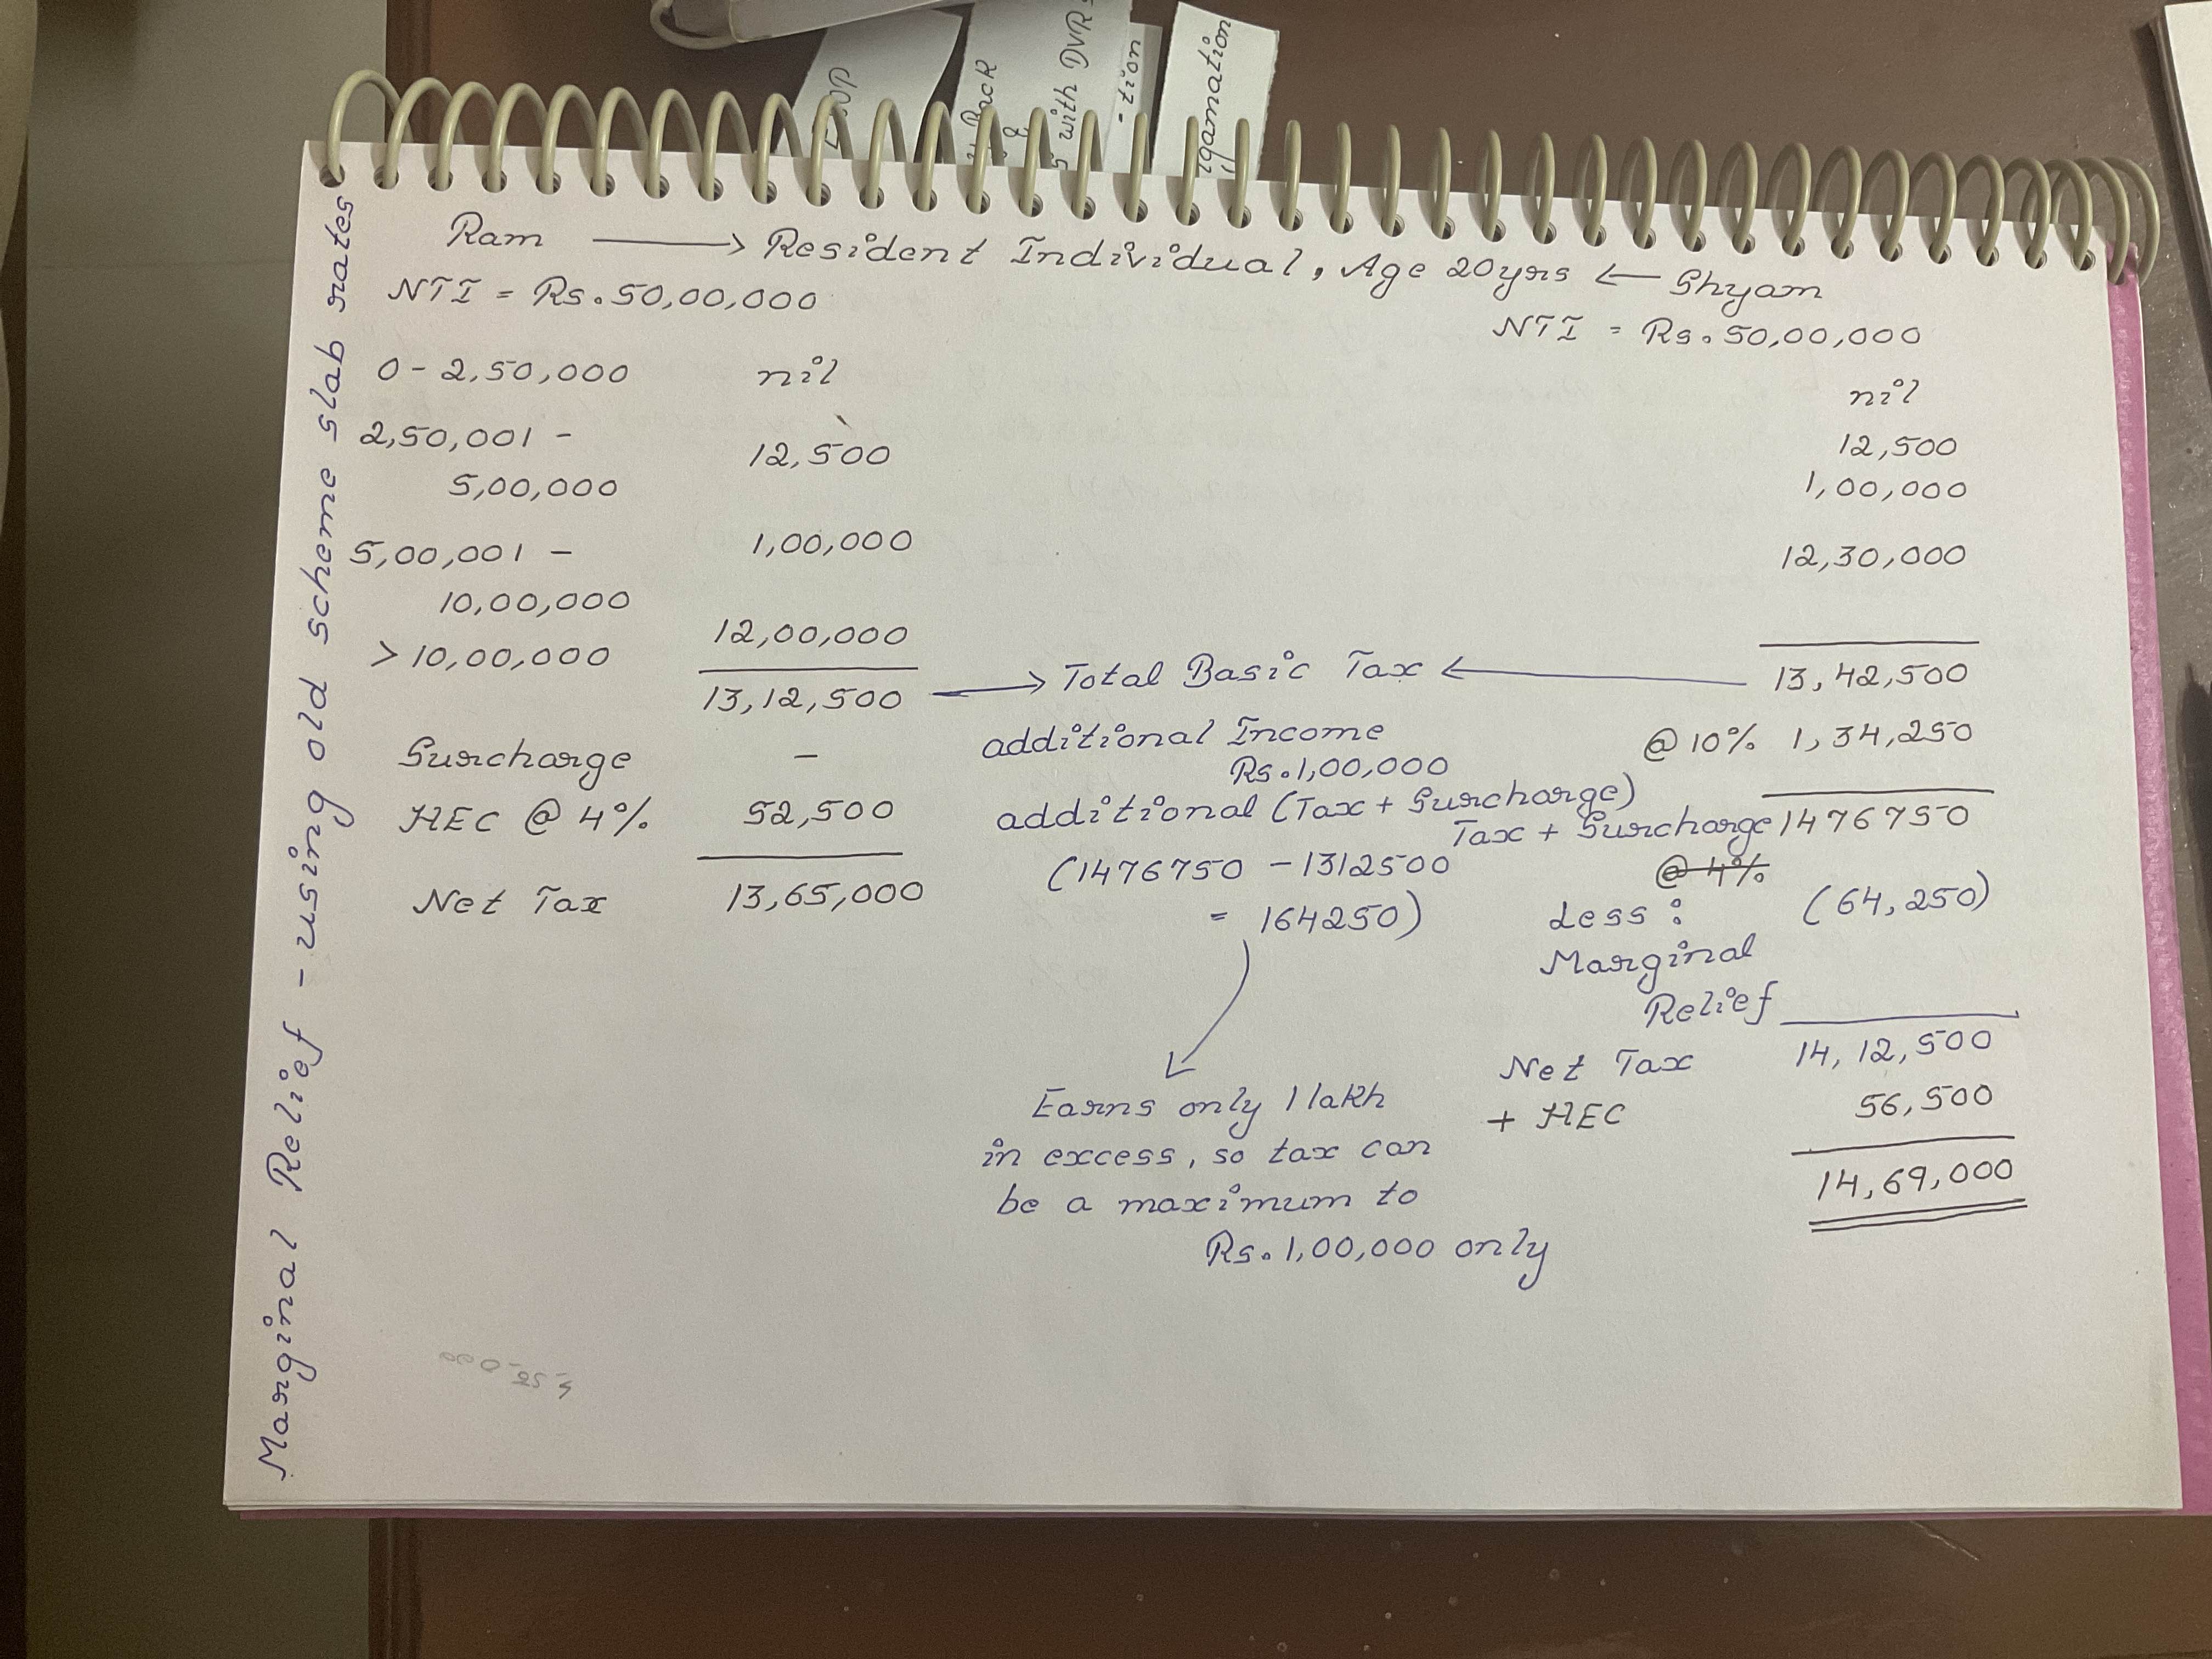 Marginal Relief - using old scheme slab rates
Back
with DVRs
- tion
Ram → Resident Individual, Age 20yrs ← Shyam
NTI = Rs. 50,00,000
NTI = Rs. 50,00,000
0 - 2,50,000 nil
nil
2,50,001 -
5,00,000
12,500
12,500
5,00,001 -
10,00,000
1,00,000
1,00,000
> 10,00,000 12,00,000
12,30,000
13,12,500 → Total Basic Tax ← 13,42,500
Surcharge -
HEC @ 4% 52,500
Net Tax 13,65,000
additional Income
Rs. 1,00,000
additional (Tax + Surcharge)
(1476750 - 1312500
= 164250)
Earns only 1 lakh
in excess, so tax can
be a maximum to
Rs. 1,00,000 only
@ 10% 1,34,250
Tax + Surcharge 1476750
@ 4%
Less : (64,250)
Marginal
Relief
Net Tax 14,12,500
+ HEC 56,500
14,69,000